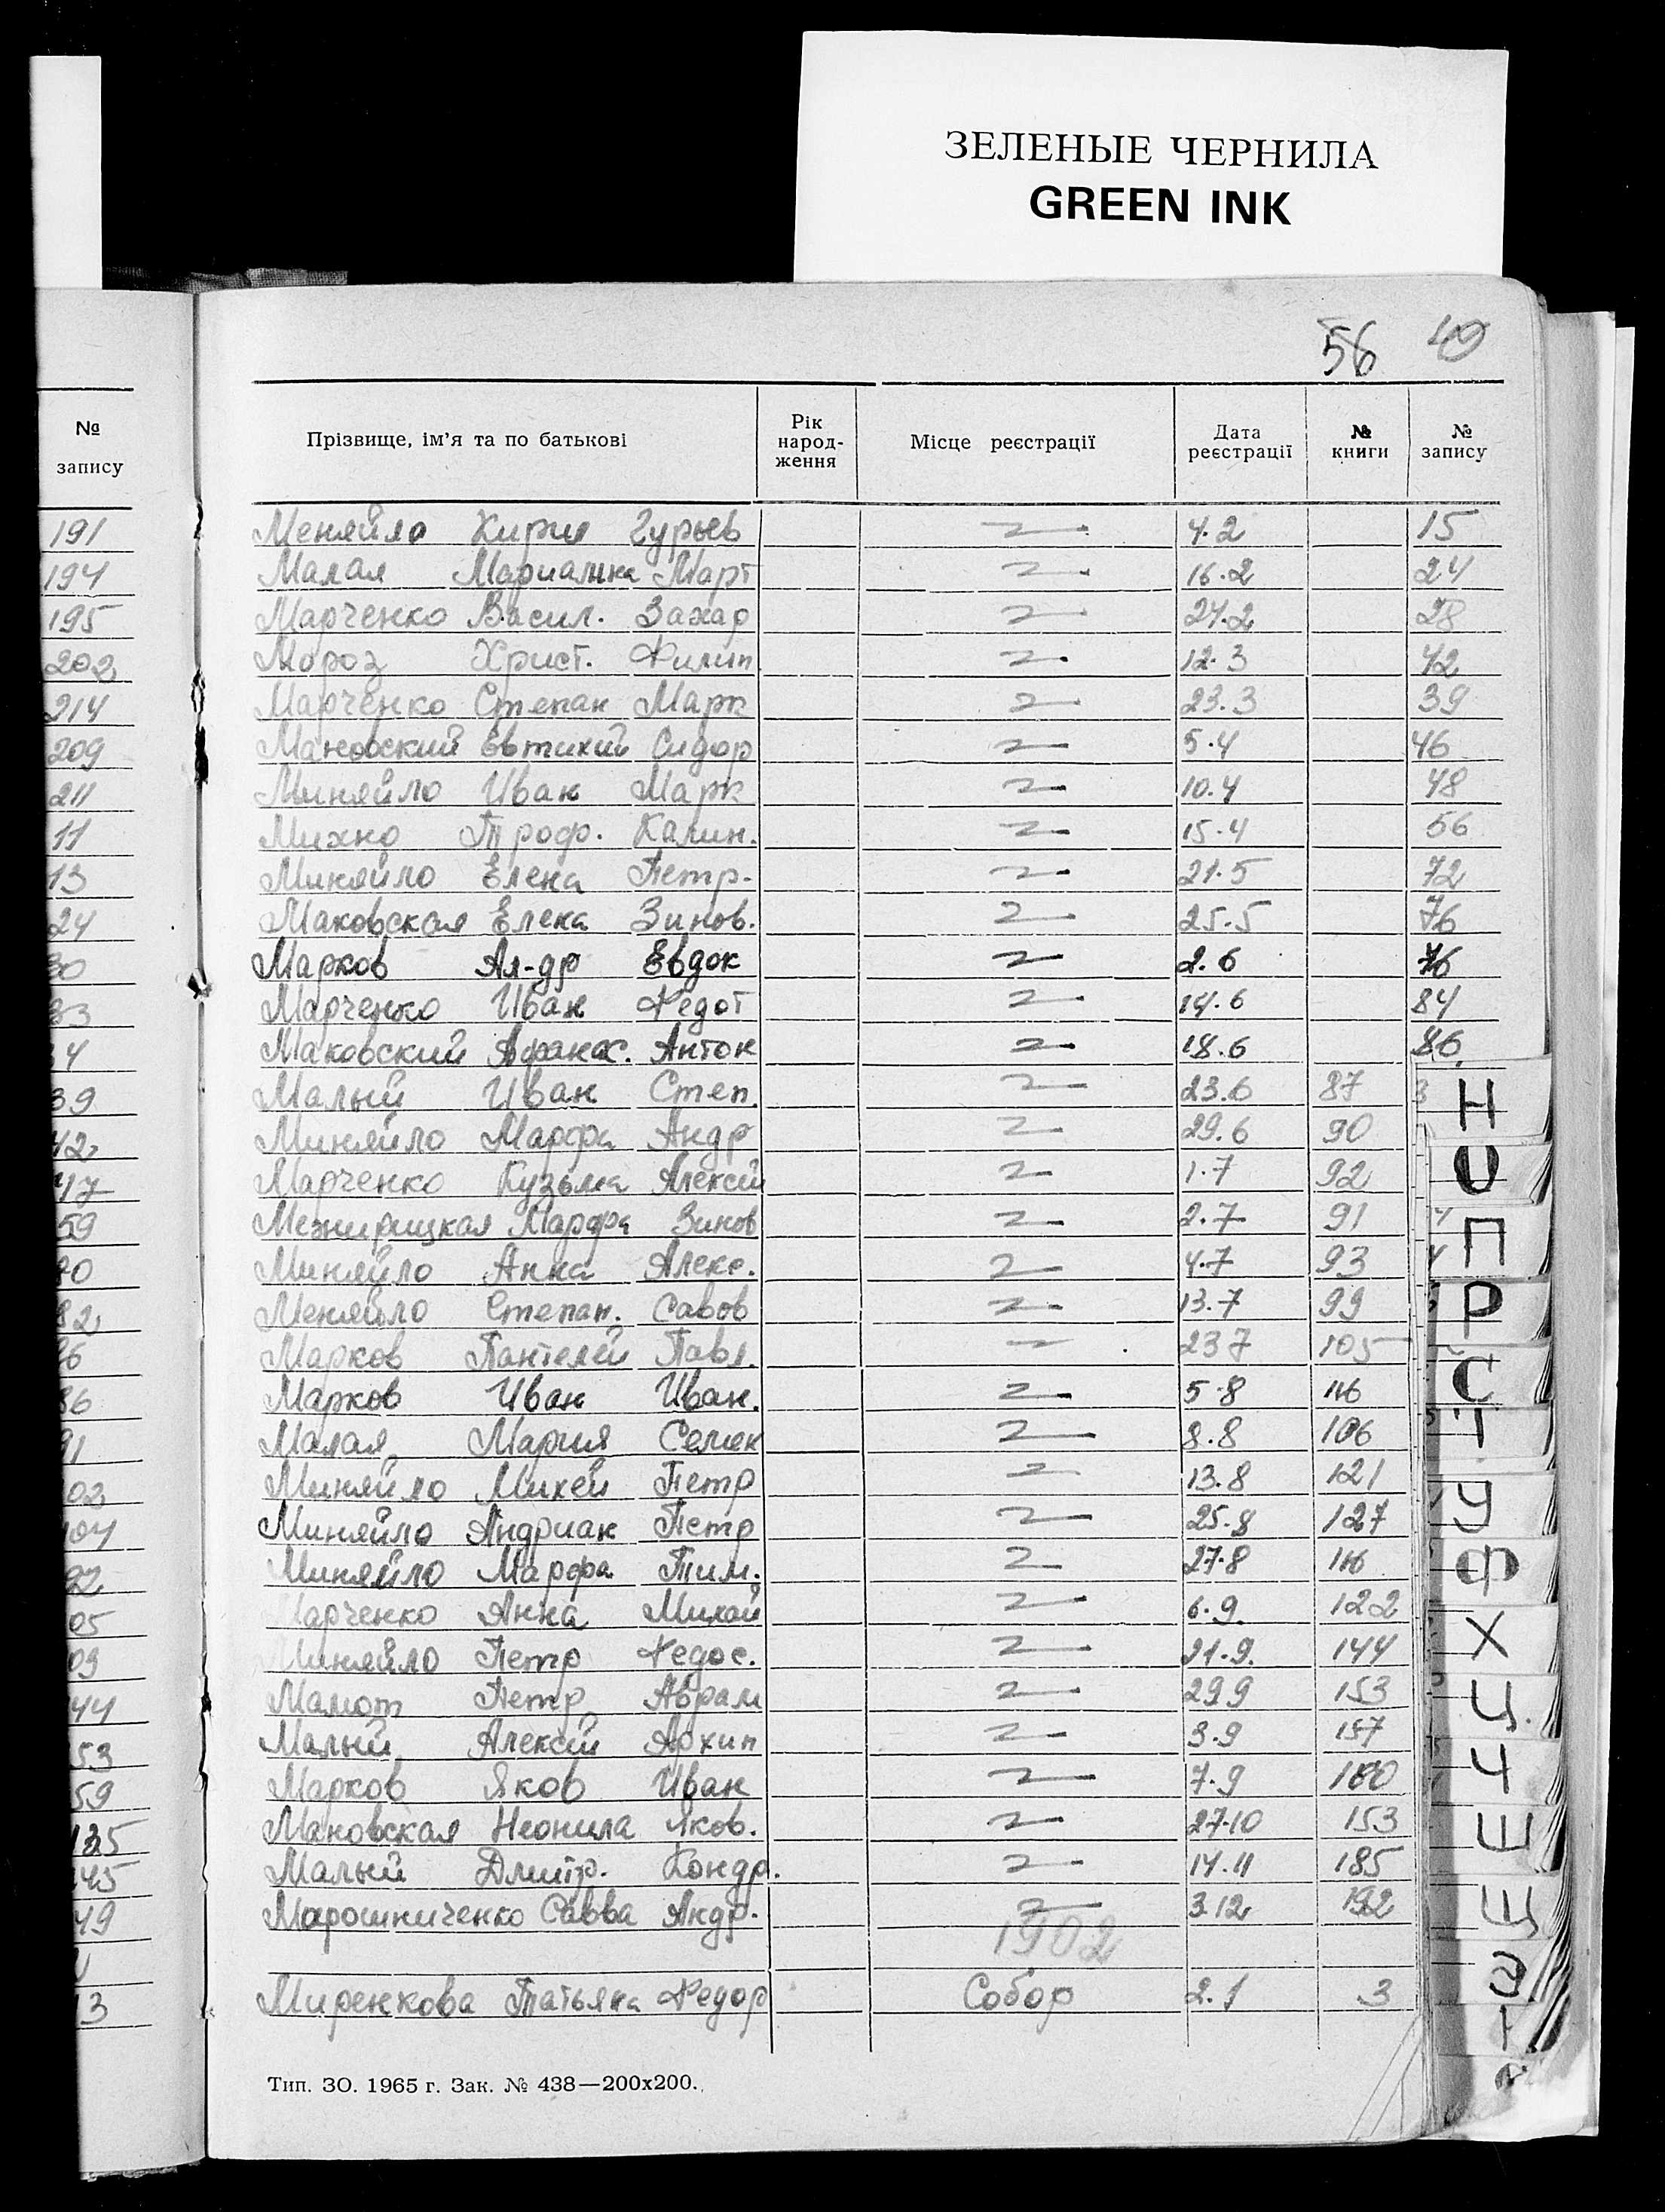 ЗЕЛЕНЫЕ ЧЕРНИЛА
GREEN INK
56 49
№ запису
191
194
195
202
214
209
211
11
13
24
30
33
4
39
42
47
59
82
86
91
03
04
92
05
09
44
53
59
135
45
49
13
Прізвище, ім'я та по батькові Рік народ-ження Місце реєстрації Дата реєстрації № книги № запису
Меняйло Кирил Гурьев 2 4.2 15
Малая Марианна Март 2 16.2 24
Марченко Васил. Захар 2 27.2 28
Мороз Христ. Филип 2 12.3 42
Марченко Степан Марк 2 23.3 39
Мановский Евтихий Сидор 2 5.4 46
Миняйло Иван Марк 2 10.4 48
Михно Троф. Калин. 2 15.4 56
Миняйло Елена Петр. 2 21.5 72
Маковская Елена Зинов. 2 25.5 76
Марков Ал-др Евдок 2 2.6 76
Марченко Иван Федот 2 14.6 84
Маковский Афанас. Антон 2 18.6 86
Малый Иван Степ. 2 23.6 87
Миняйло Марфа Андр 2 29.6 90
Марченко Кузьма Алексій 2 1.7 92
Межирицкая Марфа Зинов 2 2.7 91
Миняйло Анна Алекс. 2 4.7 93
Меняйло Степан. Савов 2 13.7 99
Марков Пантелей Павл. 23 7 105
Марков Иван Иван. 2 5.8 116
Малая Мария Семен 2 8.8 106
Миняйло Михей Петр 2 13.8 121
Миняйло Андриан Петр 2 25.8 127
Миняйло Марфа Тим. 2 27.8 116
Марченко Анна Михай 2 6.9. 122
Миняйло Петр Федос. 2 21.9. 144
Мамот Петр Аврам 2 29 9 153
Малый Алексій Архип 2 3.9 157
Марков Яков Иван 2 7.9 160
Мановская Неонила Яков. 2 27.10 153
Малый Дмитр. Кондр. 2 14.11 185
Марошниченко Савва Андр. 2 3.12 192
1902
Миренкова Татьяна Федор Собор 2.1 3
Тип. ЗО. 1965 г. Зак. № 438—200х200.
Н
О
П
Р
С
Т
У
Ф
Х
Ц
Ч
Ш
Щ
Э